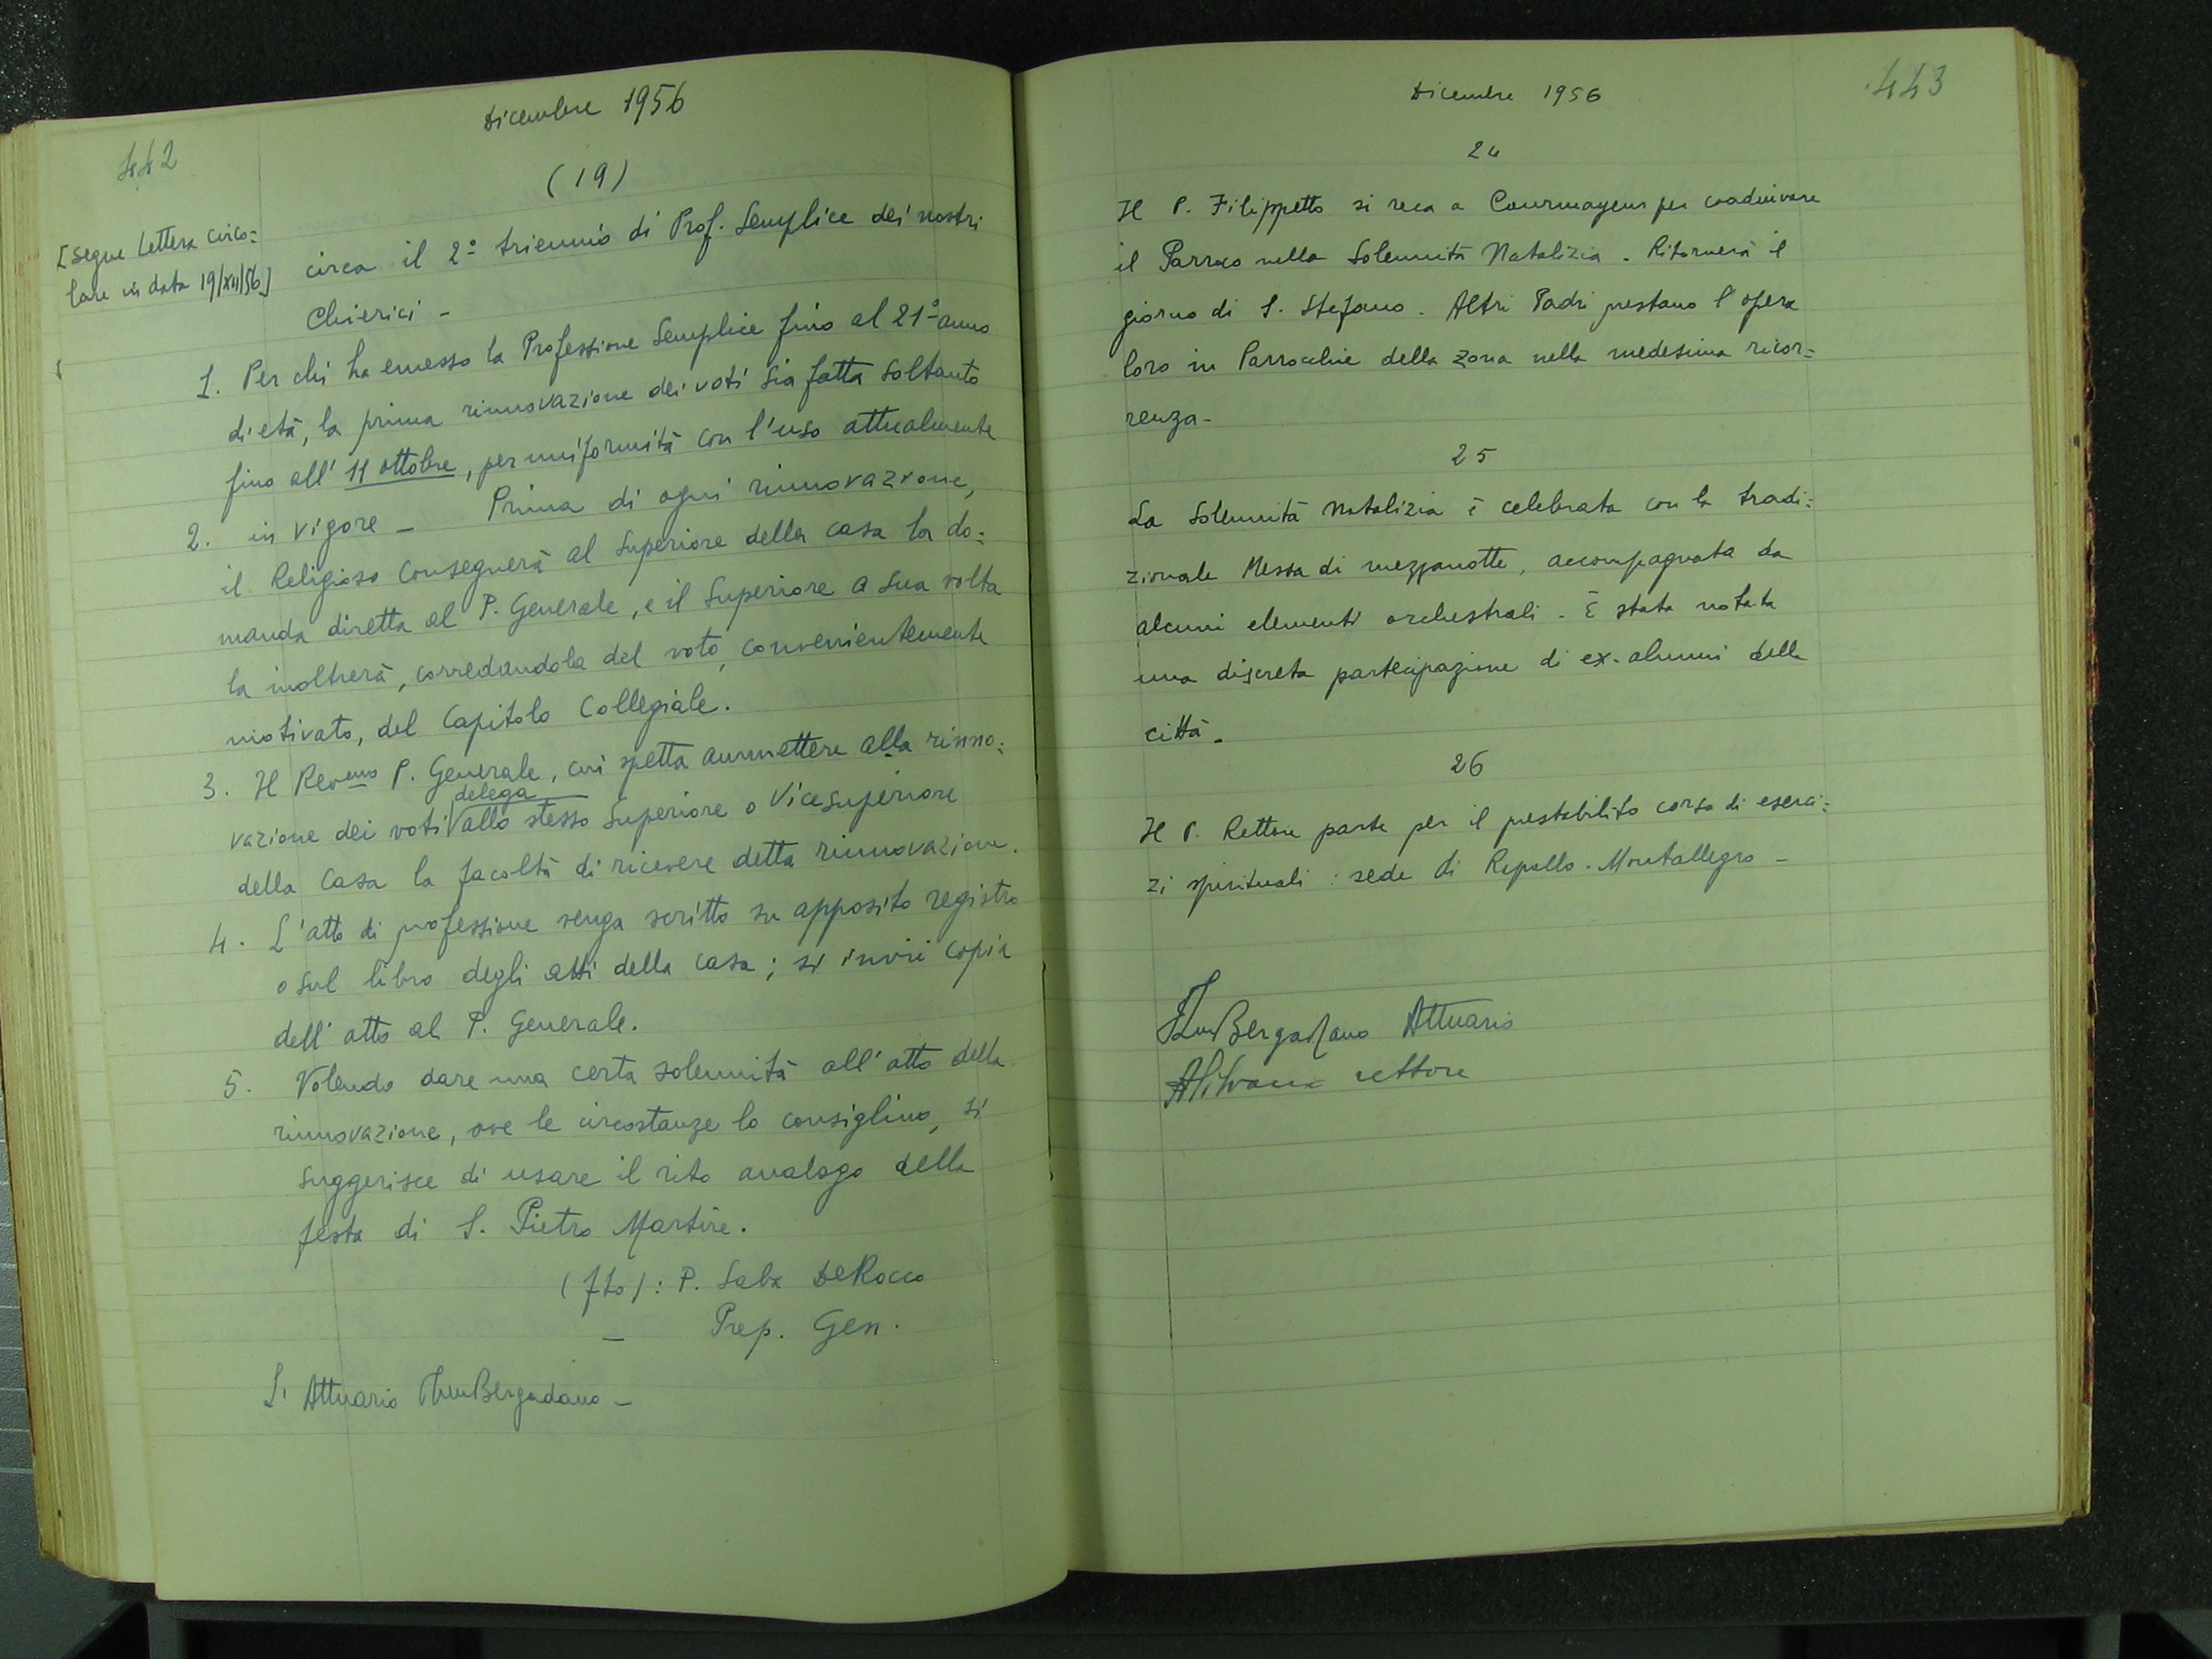 442
Dicembre 1956
(19)
[segue lettera circo=
lare in data 19/XII/56]
circa il 2° triennio di Prof. Semplice dei nostri
Chierici -
1. Per chi ha emesso la Professione Semplice fino al 21° anno
di età, la prima rinnovazione dei voti sia fatta soltanto
fino all' 11 ottobre, per uniformità con l'uso attualmente
in vigore -
2. Prima di ogni rinnovazione,
il Religioso consegnerà al Superiore della casa la do=
manda diretta al P. Generale, e il Superiore a sua volta
la inoltrerà, corredandola del voto, convenientemente
motivato, del Capitolo Collegiale.
3. Il Rev.mo P. Generale, cui spetta ammettere alla rinno=
delega
vazione dei voti allo stesso Superiore o Vicesuperiore
della Casa la facoltà di ricevere detta rinnovazione.
4. L'atto di professione venga scritto su apposito registro
o sul libro degli atti della casa; si invii copia
dell'atto al P. Generale.
5. Volendo dare una certa solennità all'atto della
rinnovazione, ove le circostanze lo consiglino, si
suggerisce di usare il rito analogo della
festa di S. Pietro Martire.
(fto): P. Saba De Rocco
- Prep. Gen.
Attuario Bergadano -
443
Dicembre 1956
24
Il P. Filippetto si reca a Courmayeur per coadiuvare
il Parroco nella Solennità Natalizia. Ritornerà il
giorno di S. Stefano. Altri Padri prestano l'opera
loro in Parrocchie della zona nella medesima ricor=
renza -
25
La Solennità Natalizia è celebrata con la tradi=
zionale Messa di mezzanotte, accompagnata da
alcuni elementi orchestrali - È stata notata
una discreta partecipazione di ex-alunni della
città -
26
Il P. Rettore parte per il prestabilito corso di eserci=
zi spirituali: sede di Rapallo - Montallegro -
Bergadano Attuario
rettore